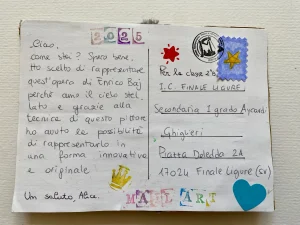 2025
Ciao,
come stai? Spero bene.
Ho scelto di rappresentare
quest'opera di Enrico Baj
perché amo il cielo stel
lato e grazie alla
tecnica di questo pittore
ho avuto le possibilità
di rappresentarlo in
una forma innovativa
e originale
Un saluto, Alice.
Per la classe 2ªB
I.C. FINALE LIGURE
Secondaria I grado Aycardi
Ghiglieri
Piazza
17024 Finale Ligure (SV)
MAIL ART